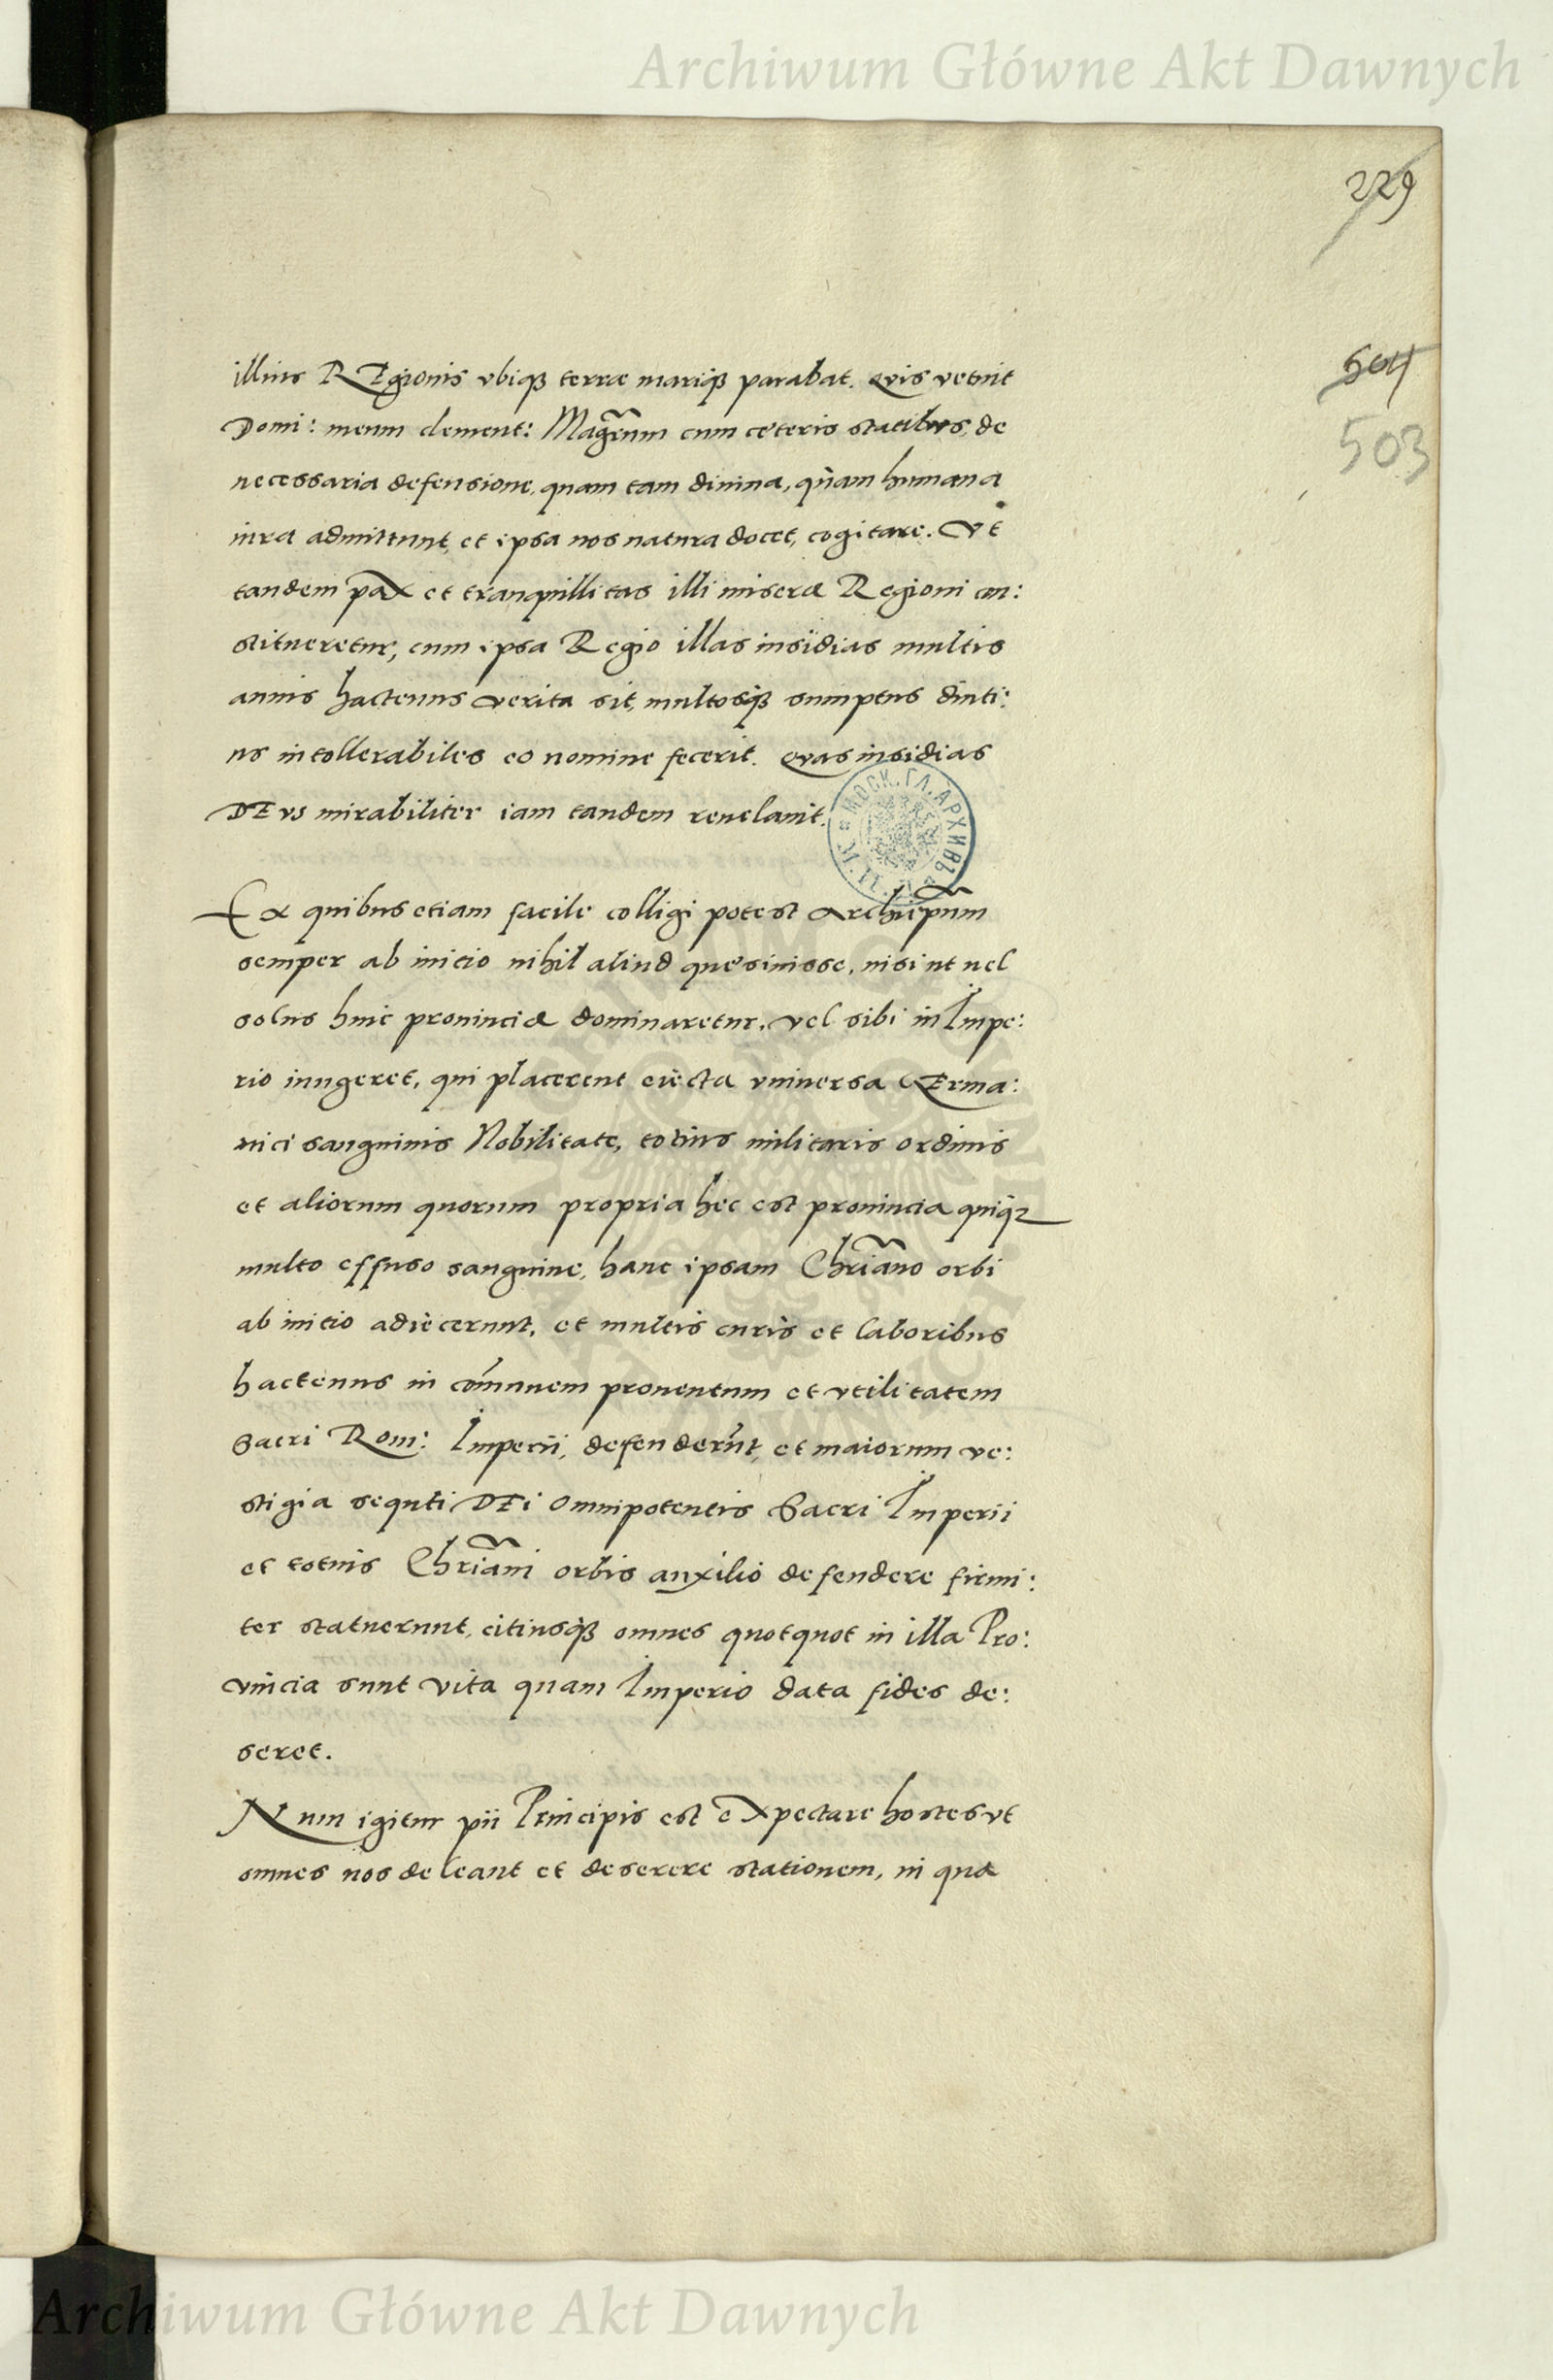 Archiwum Główne Akt Dawnych
229
504
503
illius REgionis vbiq terræ mariq parabat. Qvis vetuit
Domi: meum clement: Magrum cum cæteris statibus, de
necessaria defensione, quam tam diuina, quam humana
iura admittunt, et ipsa nos natura docet, cogitare. Vt
tandem pax et tranquillitas illi miseræ Regioni con:
stitueretur, cum ipsa Regio illas insidias multis
annis hactenus verita sit, multosq sumptus diuti:
us intollerabiles eo nomine fecerit. Qvas insidias
DEvs mirabiliter iam tandem reuelauit.
МОСК. ГЛ. АРХИВЪ
Ex quibus etiam facile colligi potest Archiepum
semper ab initio nihil aliud quesiuisse, nisi ut uel
solus huic prouinciæ dominaretur, vel sibi in Impe:
rio iungeret, qui placerent eiecta vniuersa GErma:
nici sanguinis Nobilitate, totius militaris ordinis
et aliorum quorum propria hec est prouincia quiq
multo effuso sanguine, hanc ipsam Chriano orbi
ab initio adiecerunt, et multis curis et laboribus
hactenus in comunem prouentum et vtilitatem
Sacri Rom: Imperii, defenderunt, et maiorum ve:
stigia sequti DEi omnipotentis Sacri Imperii
et totius Chriani orbis auxilio defendere firmi:
ter statuerunt, citiusq omnes quotquot in illa Pro:
vincia sunt vita quam Imperio data fides de:
seret.
Num igitur pii Principis est expectare hostes vt
omnes nos deleant et deserere stationem, in qua
Archiwum Główne Akt Dawnych